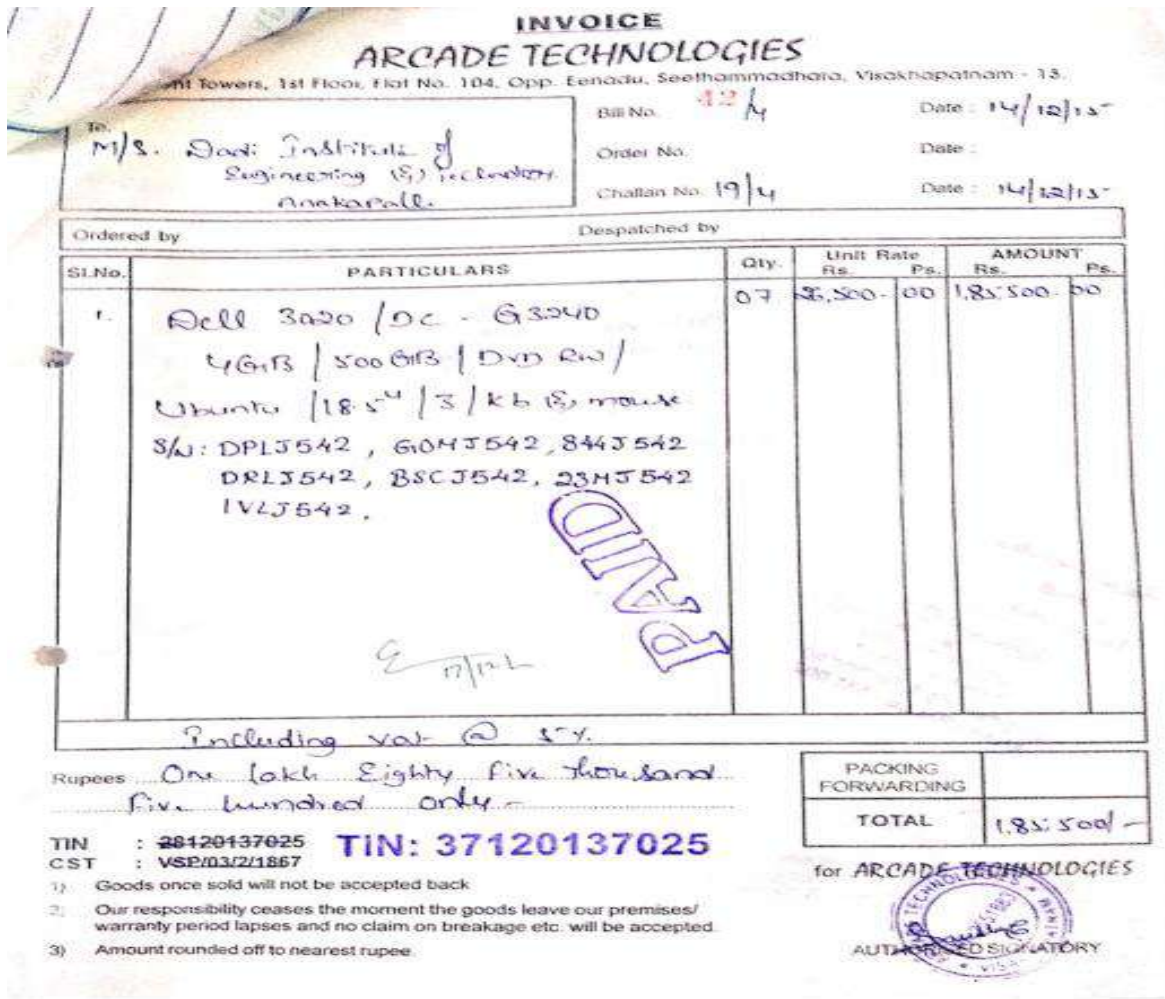 INVOICE
ARCADE TECHNOLOGIES
Towers, 1st Floor, Flat No. 104, Opp. Eenadu, Seethammadhara, Visakhapatnam - 13.
To,
M/S. Dadi Institute of
Engineering & Technology
Anakapalle
Bill No. 42/4 Date : 14/12/15
Order No. Date :
Challan No. 19/4 Date : 14/12/15
Ordered by Despatched by
Sl.No. PARTICULARS Qty. Unit Rate Rs. Ps. AMOUNT Rs. Ps.
1. Dell 3020 / DC - G3240 07 26,500- 00 1,85,500- 00
4GB / 500GB / DVD RW /
Ubuntu / 18.5" / 3 / kb & mouse
S/N: DPLJ542, GOMJ542, 844J542
DRLJ542, BSCJ542, 23MJ542
1VLJ542.
PAID
Including vat @ 5%.
Rupees One lakh Eighty five thousand
five hundred only -
PACKING
FORWARDING
TOTAL 1,85,500/-
TIN : 28120137025 TIN: 37120137025
CST : VSP/03/2/1867
for ARCADE TECHNOLOGIES
1) Goods once sold will not be accepted back
2) Our responsibility ceases the moment the goods leave our premises/
warranty period lapses and no claim on breakage etc. will be accepted.
3) Amount rounded off to nearest rupee.
AUTHORISED SIGNATORY